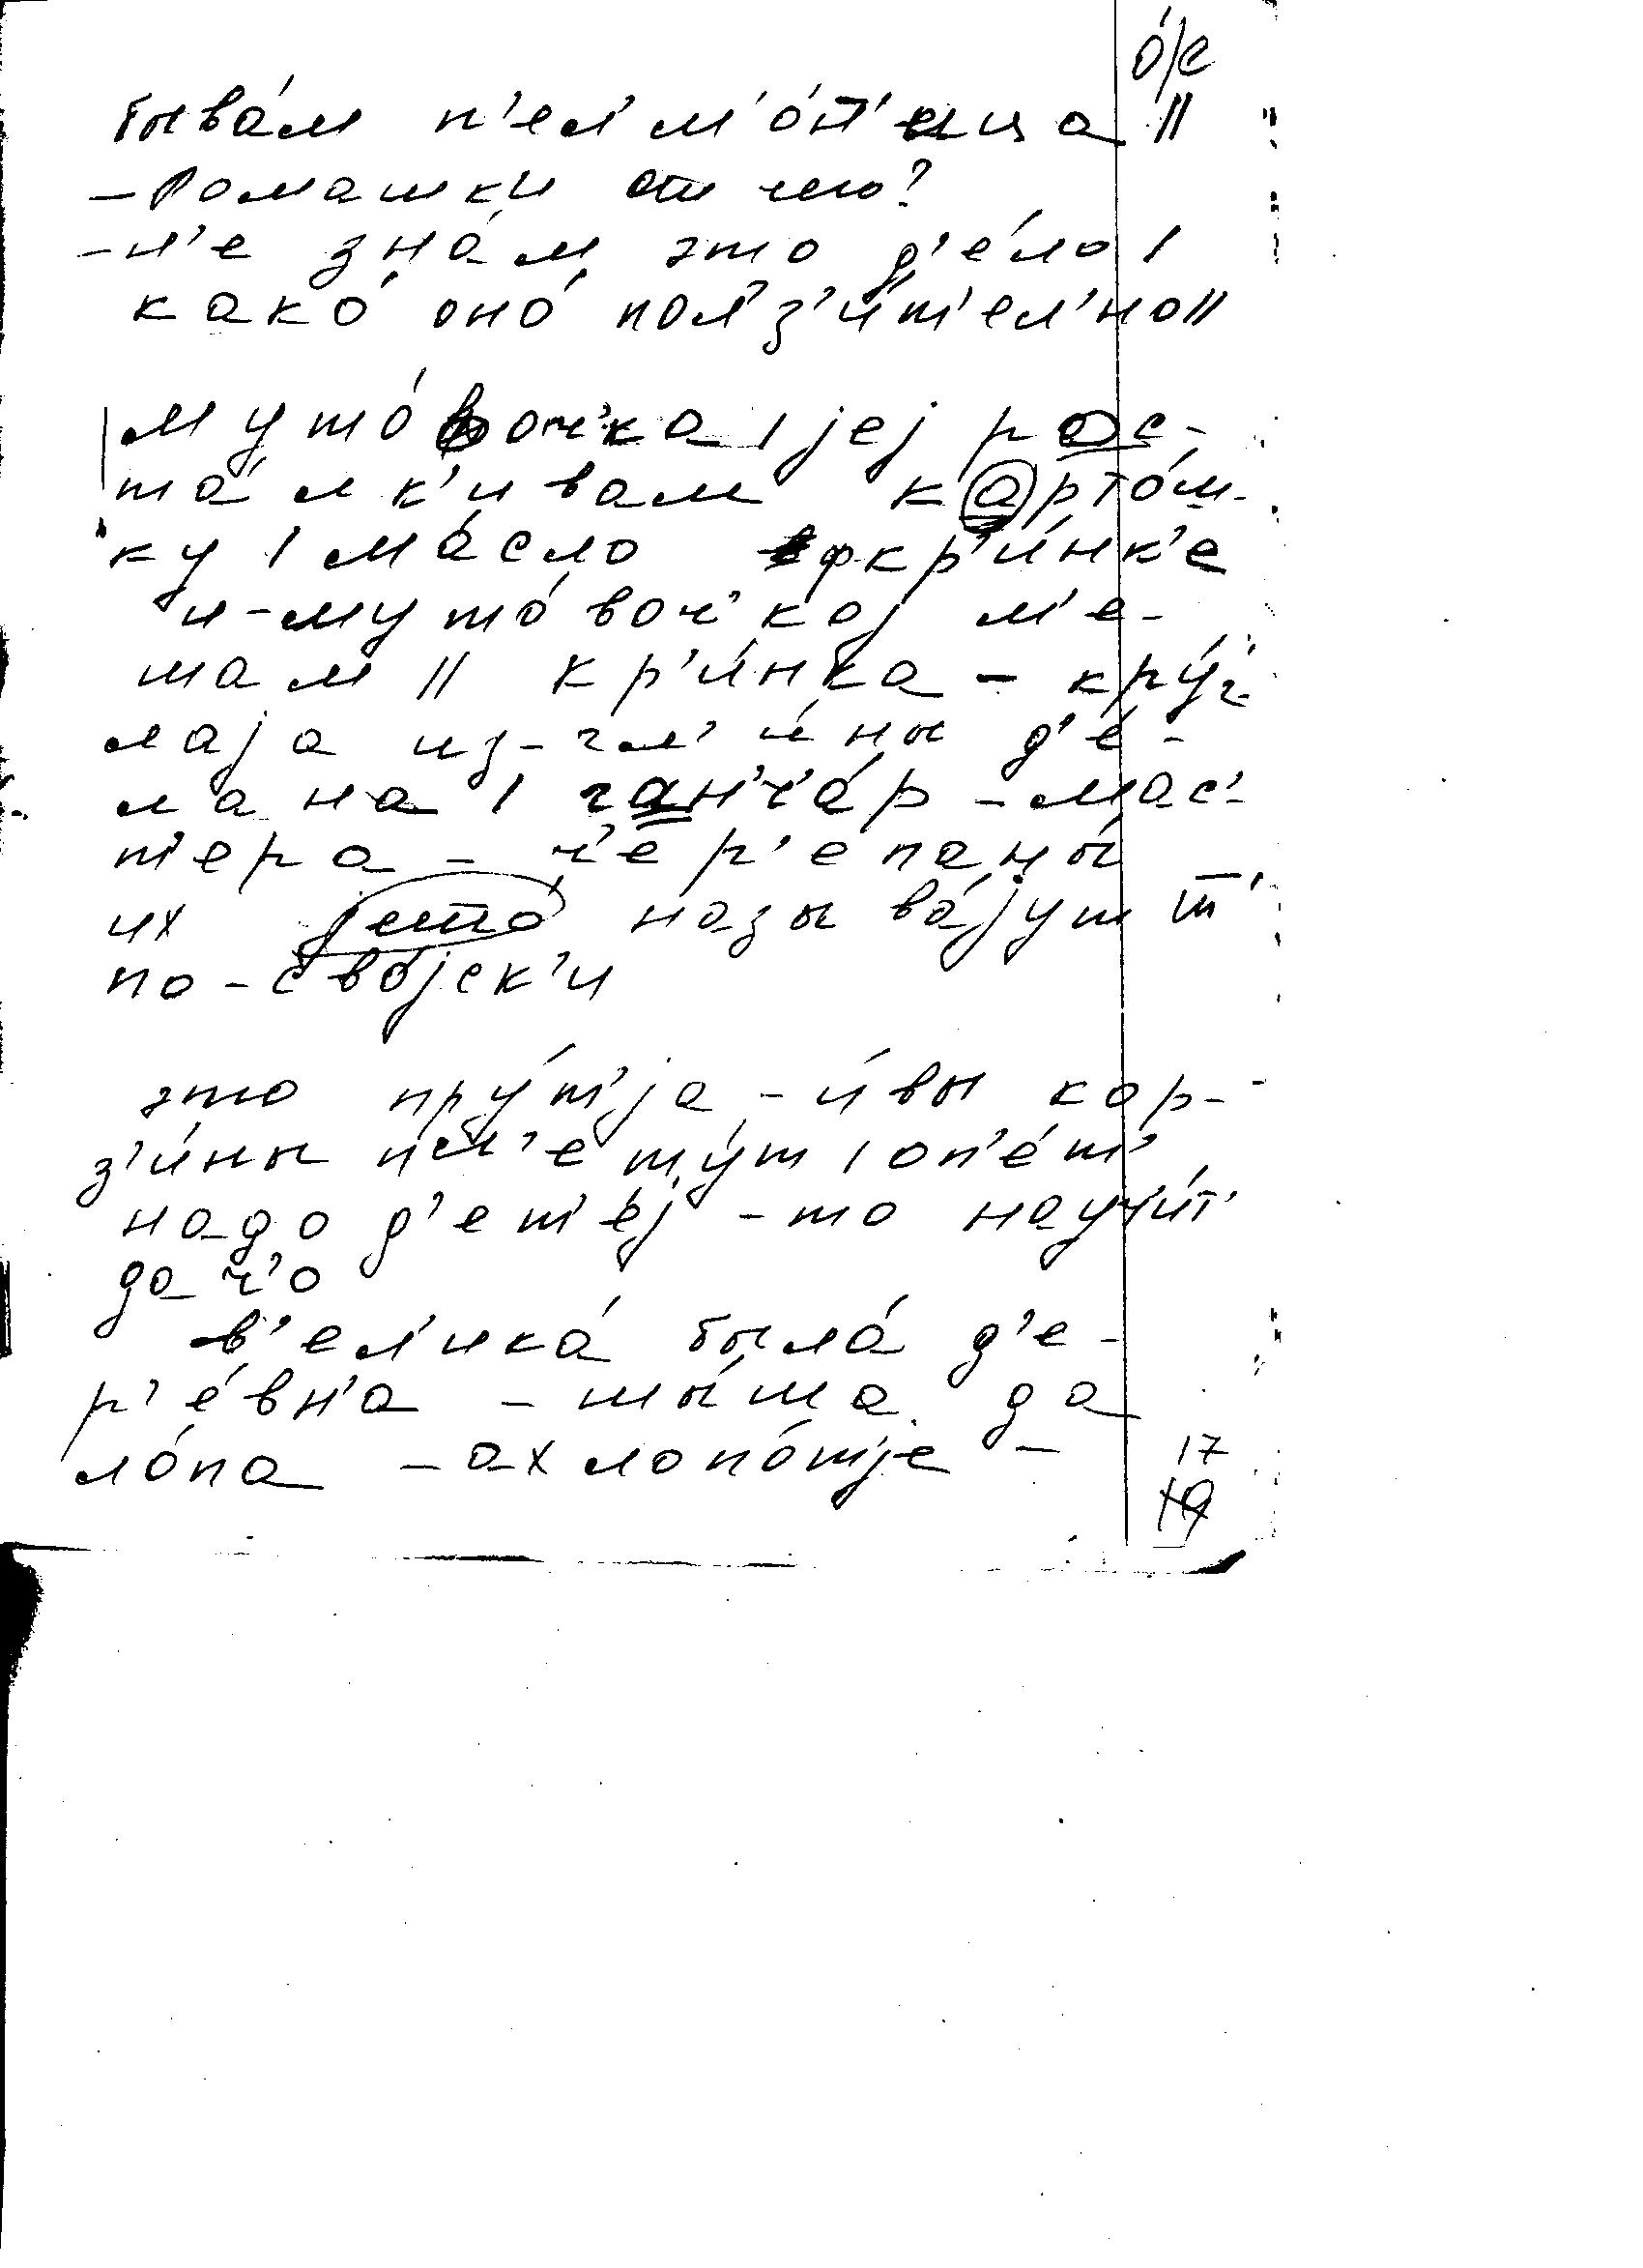 о́/е
быва́м п'ел'м'о́н'ица ||
– Ромашки от чего?
– н'е зна́м это д'е́ло |
како́ оно́ пол'з'и́т'ел'но ||
муто́воч'ка | јеј рос-
та́лк'ивам карто́ш-
ку | ма́сло фкр'и́нк'е
и-муто́воч'кој м'е-
шам || кр'и́нка – кру́г-
лаја из-гл'и́ны д'е́-
лана | ганч'а́р – мас'-
т'ера – ч'ер'епаны́
их што называ́јут т'
по-сво́јск'и
это пру́т'ја – и́вы кор-
з'и́ны пл'ету́т | оп'е́т'
надо д'ет'е́ј-то науч'и́т'
до ч'о
в'ел'ика́ была́ д'е-
р'е́вн'а – ты́ша да
ло́па – ахлопо́тје –
17